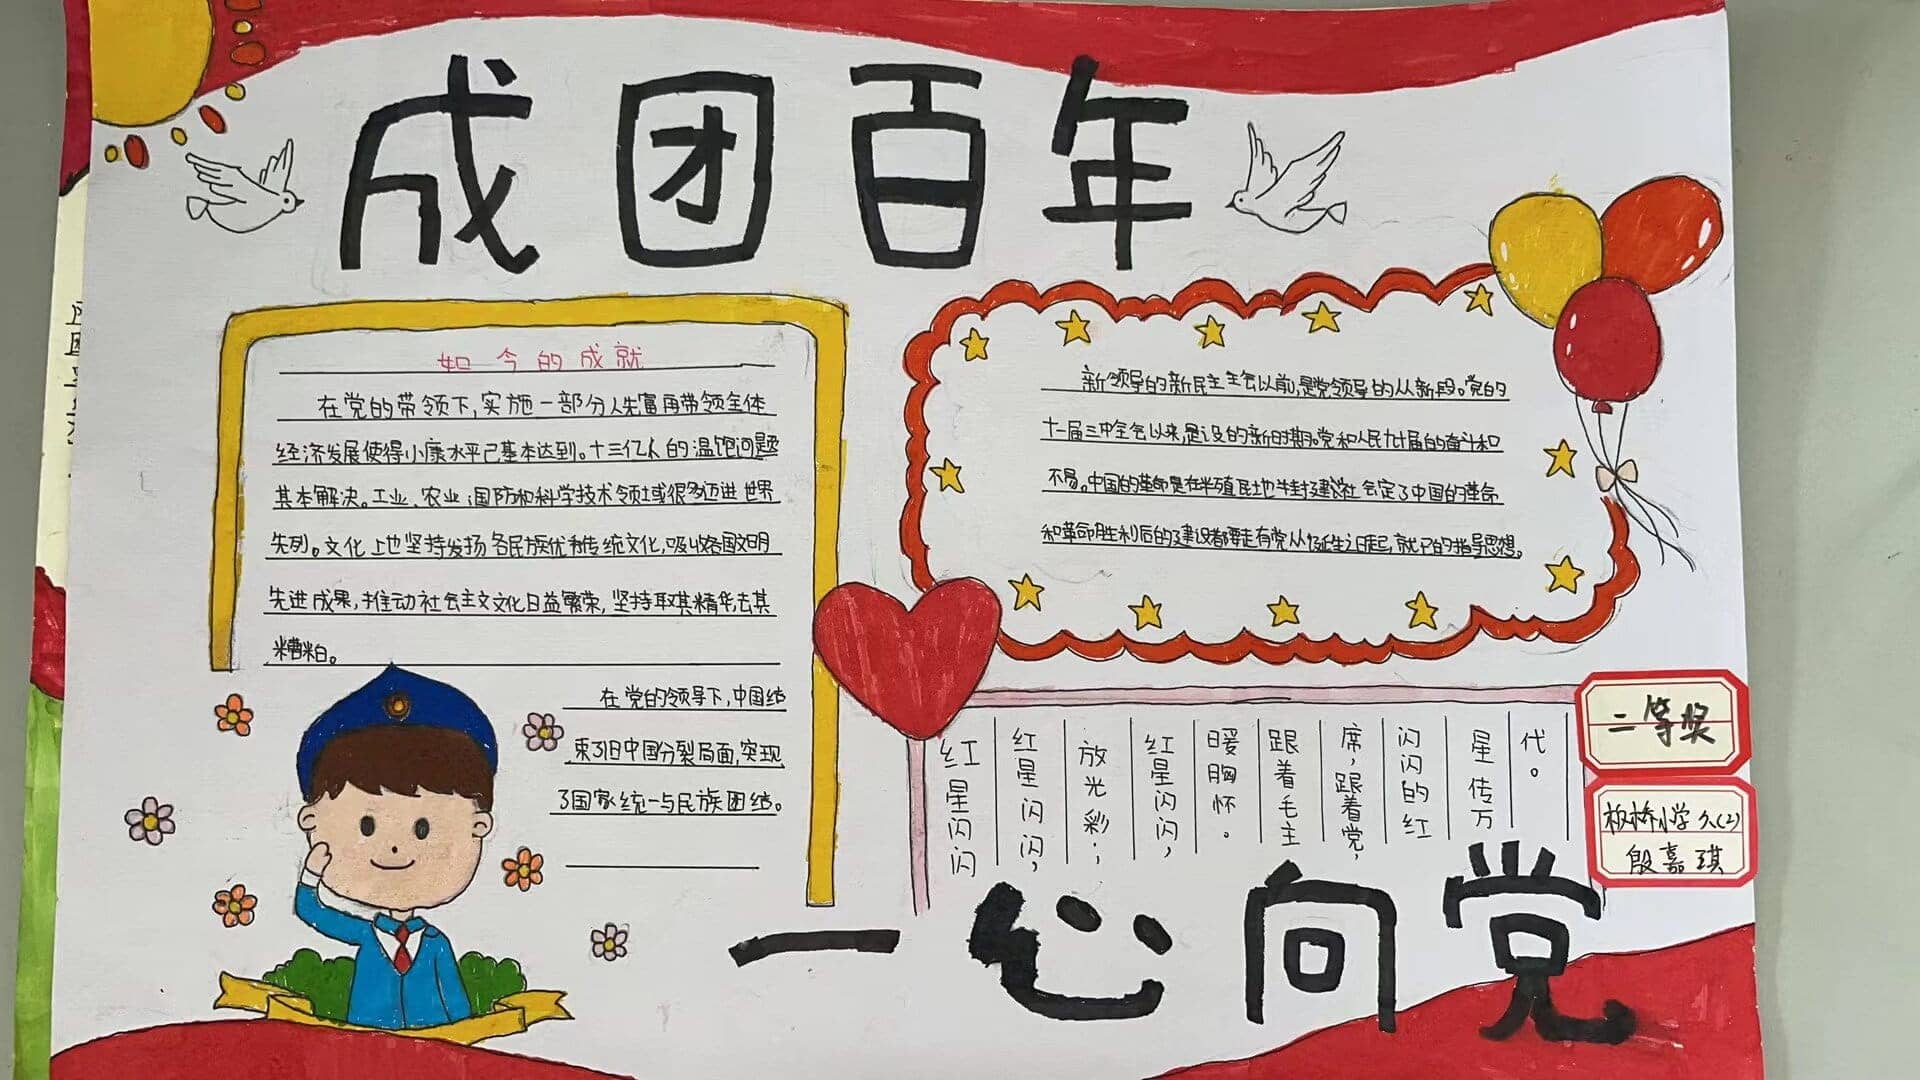 成团百年
如今的成就
在党的带领下,实施一部分人先富再带领全体
经济发展使得小康水平已基本达到。十三亿人的温饱问题
基本解决。工业、农业、国防和科学技术领域很多迈进世界
先列。文化上也坚持发扬各民族优秀传统文化,吸收各国文明
先进成果,推动社会主义文化日益繁荣,坚持取其精华去其
糟粕。
在党的领导下,中国结
束了旧中国分裂局面,实现
了国家统一与民族团结。
新领导的新民主主会以前,是党领导的从新段。党的
十一届三中全会以来,是设的新时期。党和人民九十届的奋斗和
不易。中国的革命是在半殖民地半封建社会定了中国的革命
和革命胜利后的建设都要走有党从诞生之日起,就的指导思想。
红星闪闪
红星闪闪,
放光彩;
红星闪闪,
暖胸怀。
跟着毛主
席,跟着党,
闪闪的红
星传万
代。
二等奖
板桥小学 六(2)
殷嘉琪
一心向党